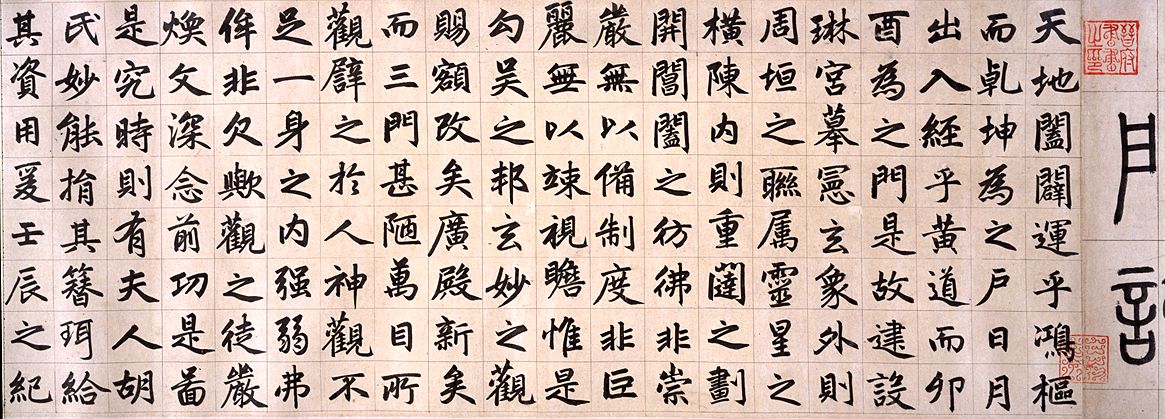 天地闔闢運乎鴻樞
而乹坤為之户日月
出入經乎黄道而卯
酉為之門是故建設
琳宮摹憲玄象外則
周垣之聯属靈星之
橫陳内則重闥之劃
開閶闔之彷彿非崇
嚴無以備制度非巨
麗無以竦視瞻惟是
勾吴之邦玄妙之觀
賜額改矣廣殿新矣
而三門甚陋萬目所
觀譬之於人神觀不
足一身之内强弱弗
侔非欠歟觀之徒嚴
煥文深念前功是啚
是究時則有夫人胡
氏妙能捐其簪珥給
其資用爰壬辰之紀
晉府書畫之印